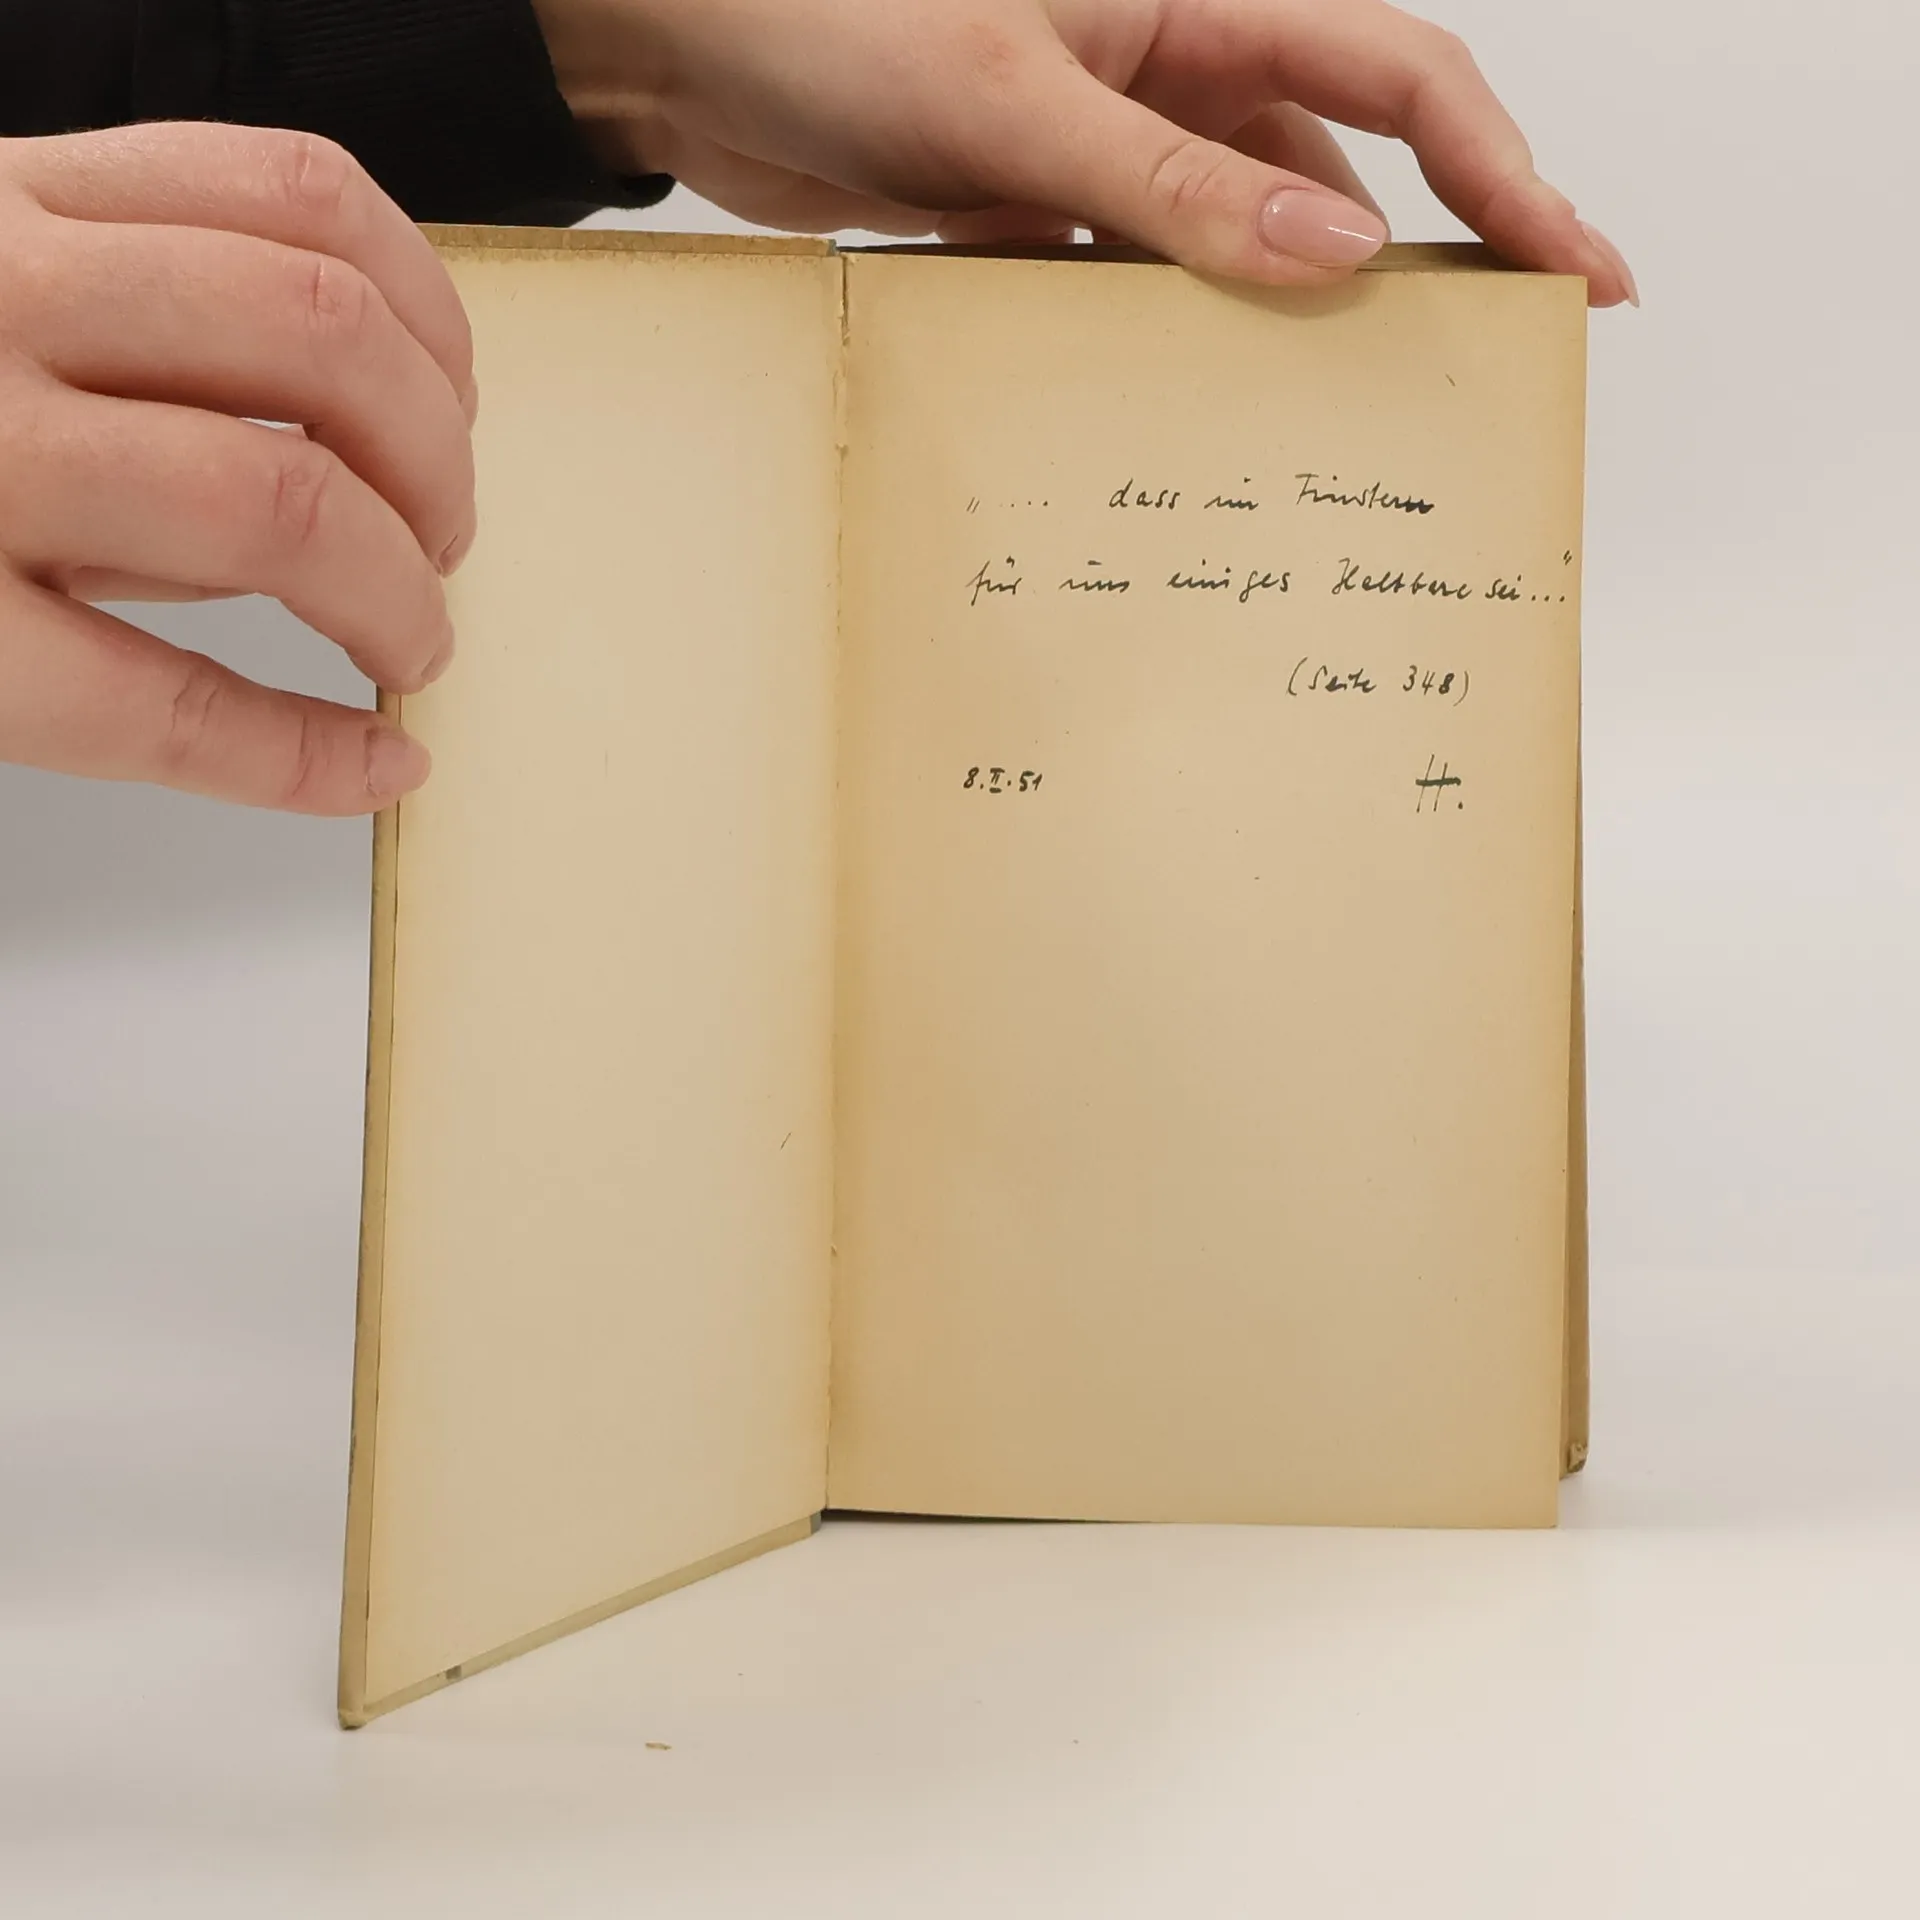 „.... dass im Finstern
für uns einiges Haltbare sei..."
(Seite 348)
8.II.51 H.